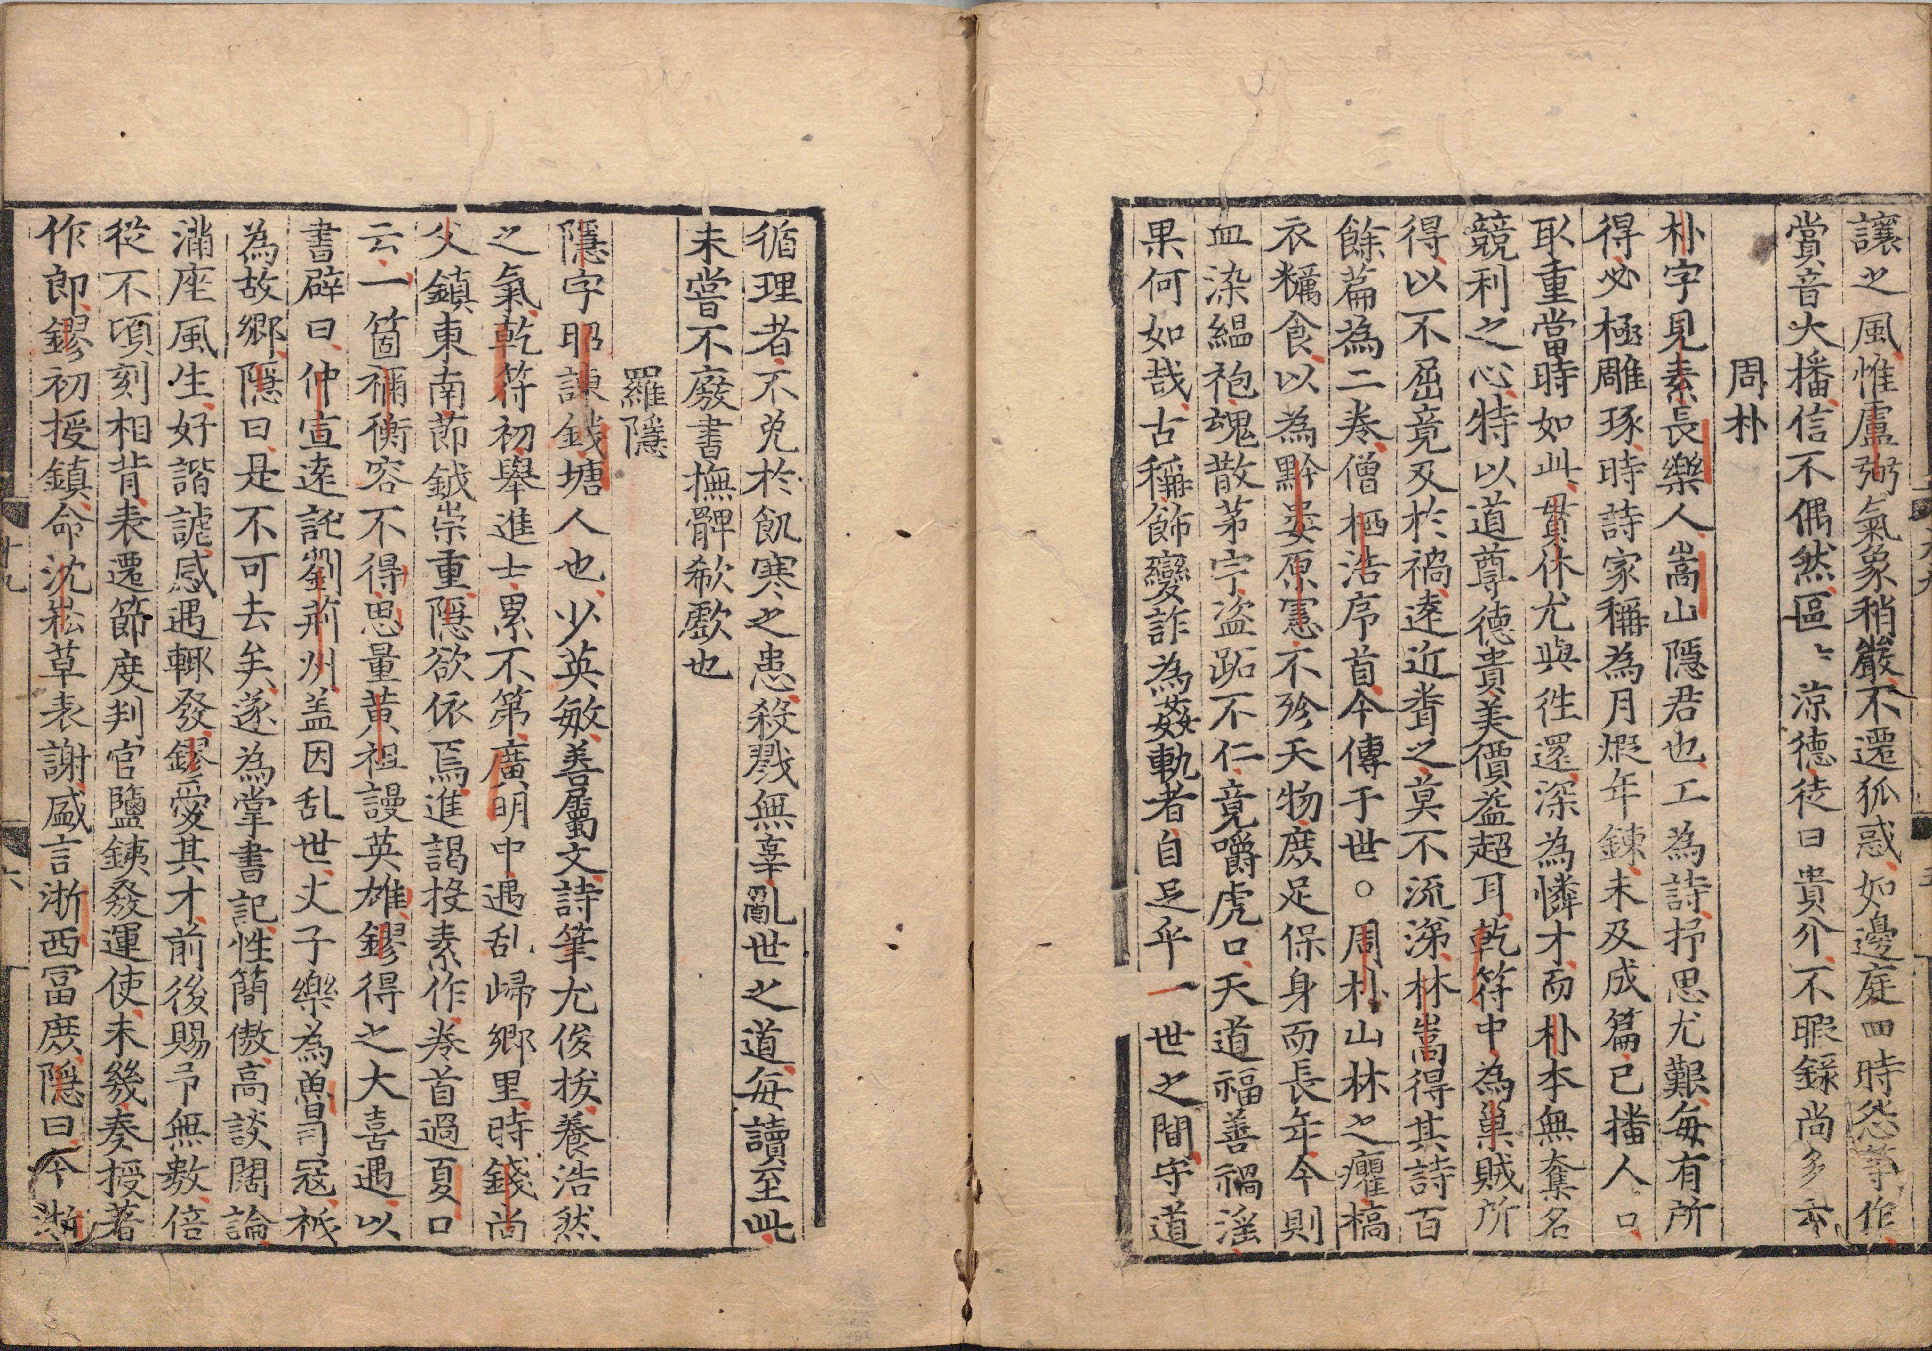 讓之風惟盧弼氣象稍嚴不遷狐惑如邊庭四時怨等作
賞音大播信不偶然區〻涼德徒曰貴介不暇録尚多云
周朴
朴字見素長樂人嵩山隠君也工為詩抒思尤艱毎有所
得必極雕琢時詩家稱為月煆年鍊未及成篇已播人口
取重當時如此貫休尤與徃還深為憐才而朴本無奪名
競利之心特以道尊德貴美價益超耳乾符中為巢賊所
得以不屈竟及於禍逺近聋之莫不流涕林嵩得其詩百
餘篇為二卷僧栖浩序首今傳于世○周朴山林之癯槁
衣糲食以為黔婁原憲不殄天物庶足保身而長年今則
血染緼袍魂散茅宇盜跖不仁竟嚼虎口天道福善禍滛
果何如哉古稱飾變詐為姦軌者自足乎一世之間守道
循理者不免於飢寒之患殺戮無辜亂世之道毎讀至此
未嘗不廢書撫髀欷歔也
羅隱
隱字昭諫錢塘人也少英敏善屬文詩筆尤俊拔養浩然
之氣乾符初舉進士累不第廣明中遇乱歸郷里時錢尚
父鎮東南節鉞崇重隱欲依焉進謁投素作卷首過夏口
云一箇禰衡容不得思量黄祖謾英雄鏐得之大喜遇以
書辟曰仲宣逺託劉荊州盖因乱世丈子樂為魯司冦袛
為故郷隱曰是不可去矣遂為掌書記性簡傲高談闊論
滿座風生好諧謔感遇輒發鏐愛其才前後賜予無敷倍
從不頃刻相背表遷節度判官鹽鉄發運使未幾奏授著
作郎鏐初授鎮命沈崧草表謝盛言浙西冨庶隱曰今浙
十九
六